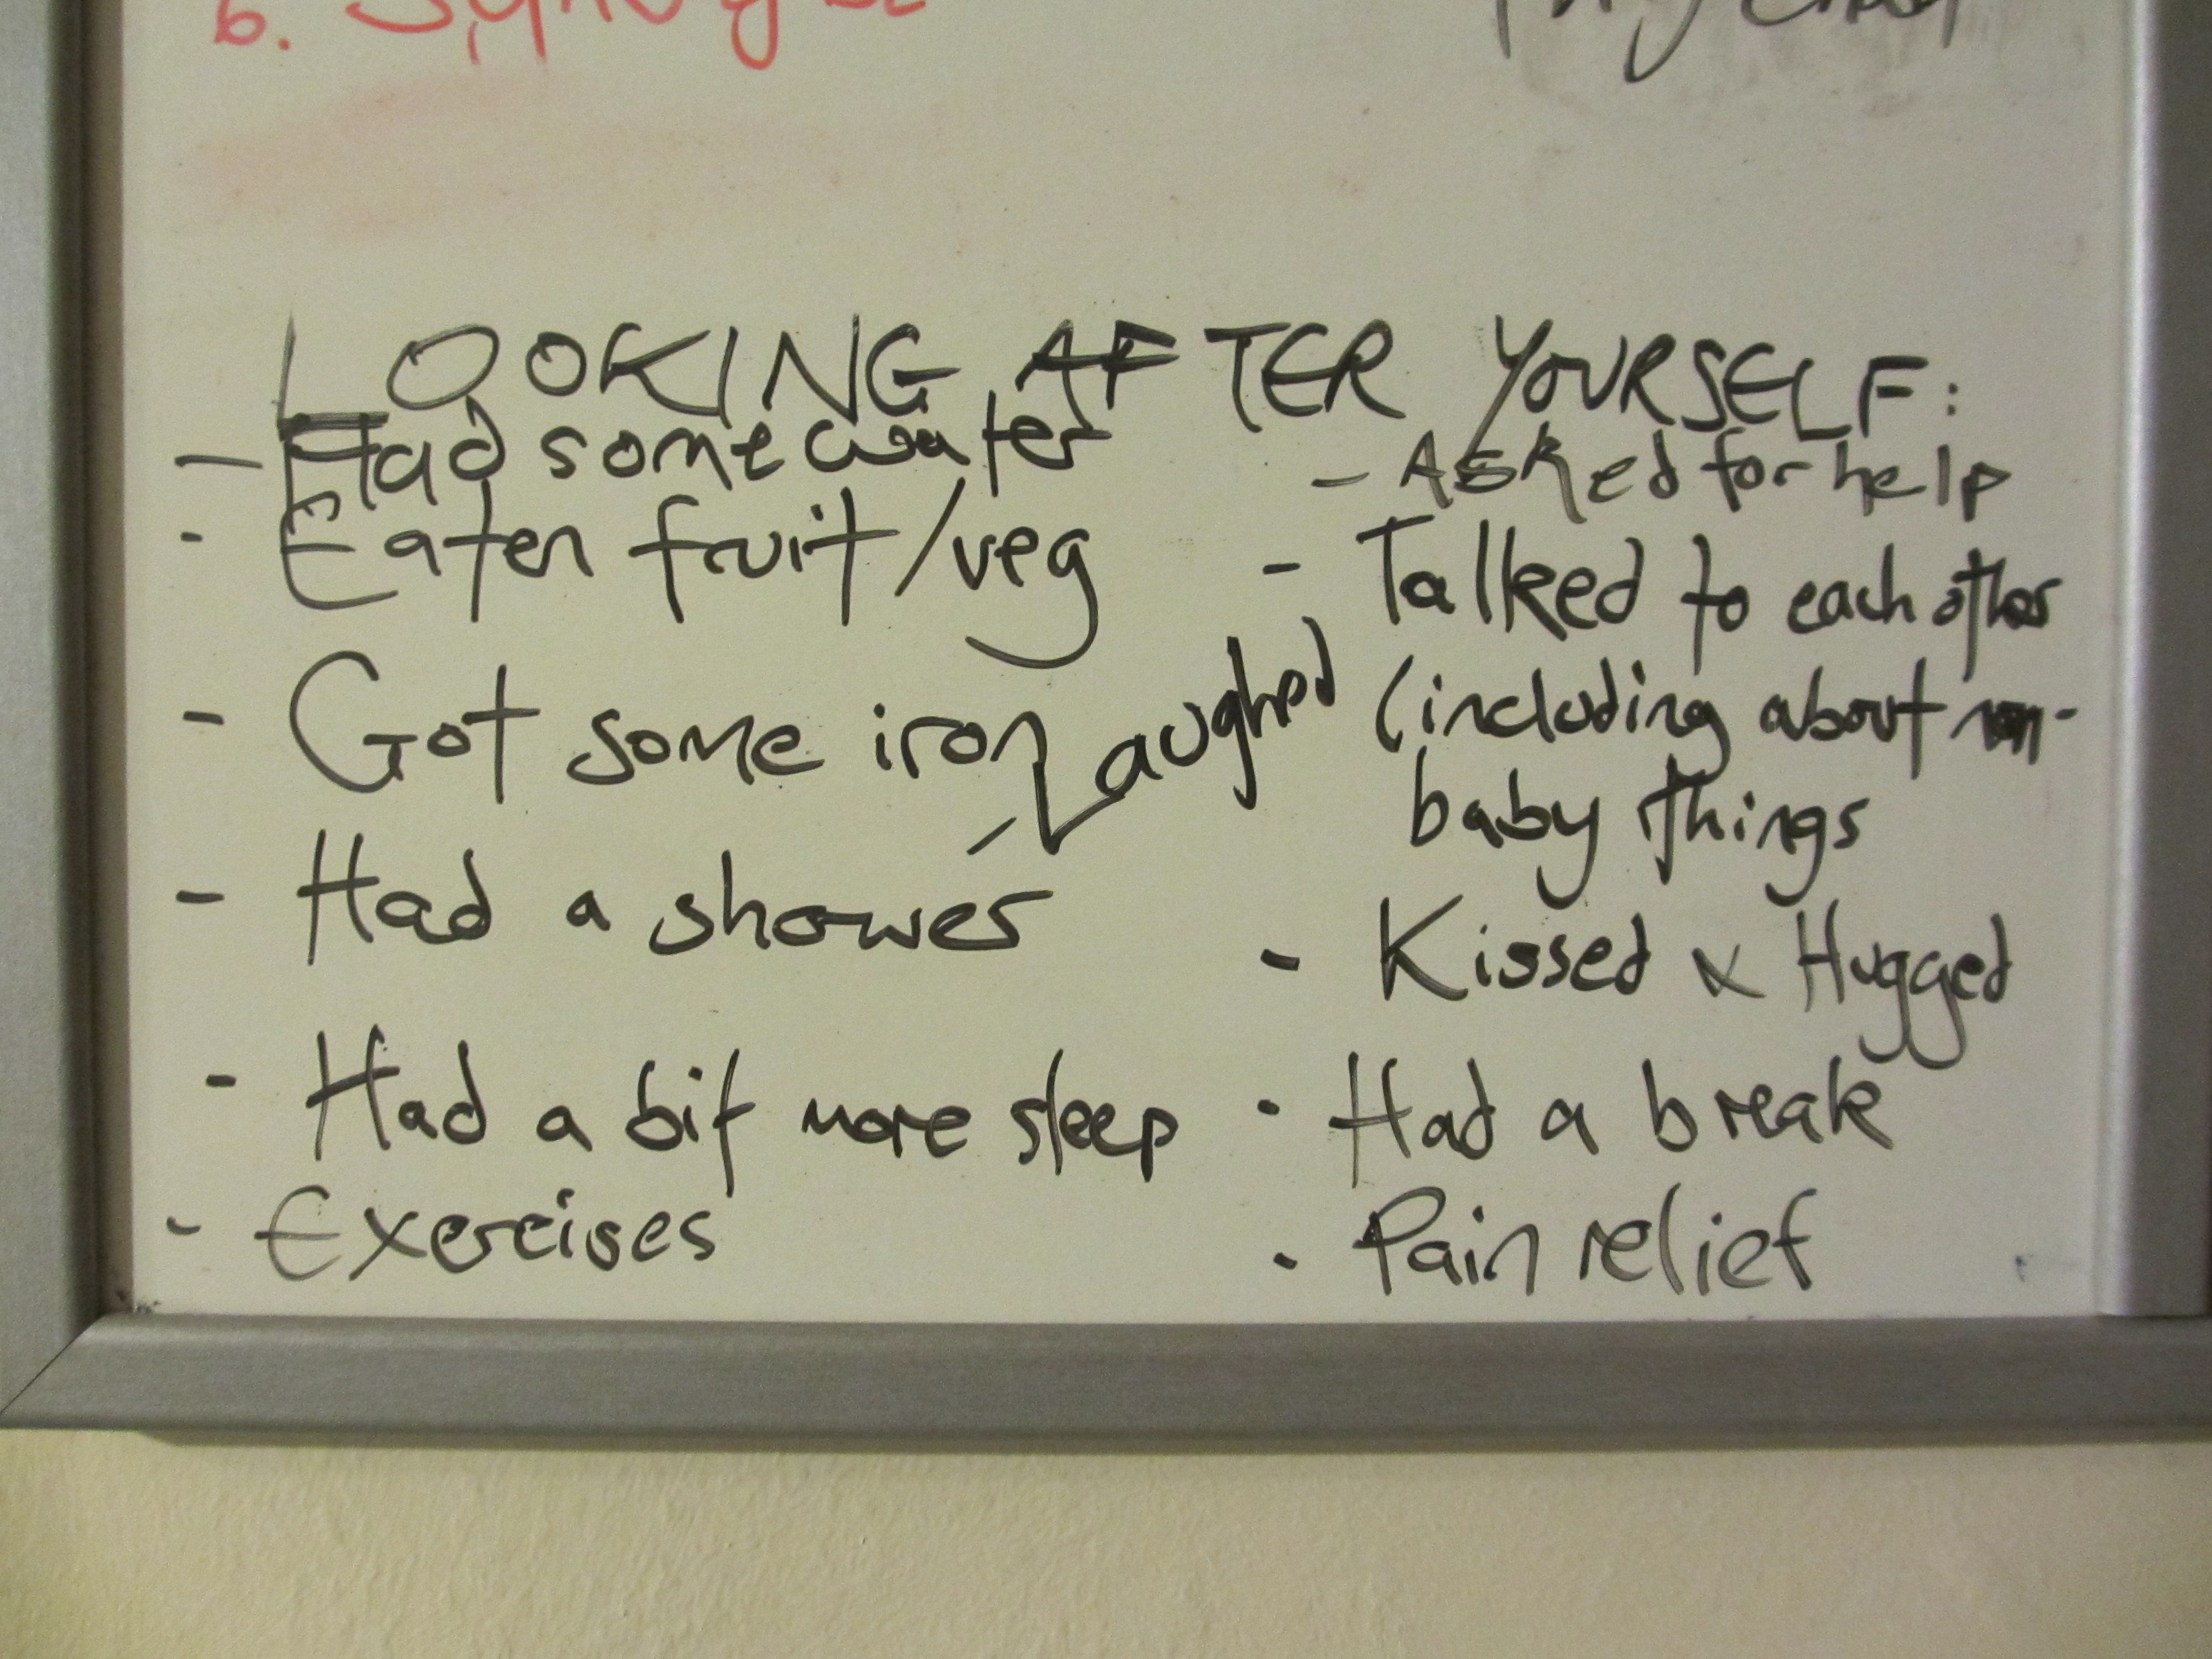 6.
LOOKING AFTER YOURSELF:
- Had some water
- Eaten fruit/veg
- Got some iron
- Laughed
- Had a shower
- Had a bit more sleep
- Exercises
- Asked for help
- Talked to each other
(including about non-
baby things
- Kissed & Hugged
- Had a break
- Pain relief